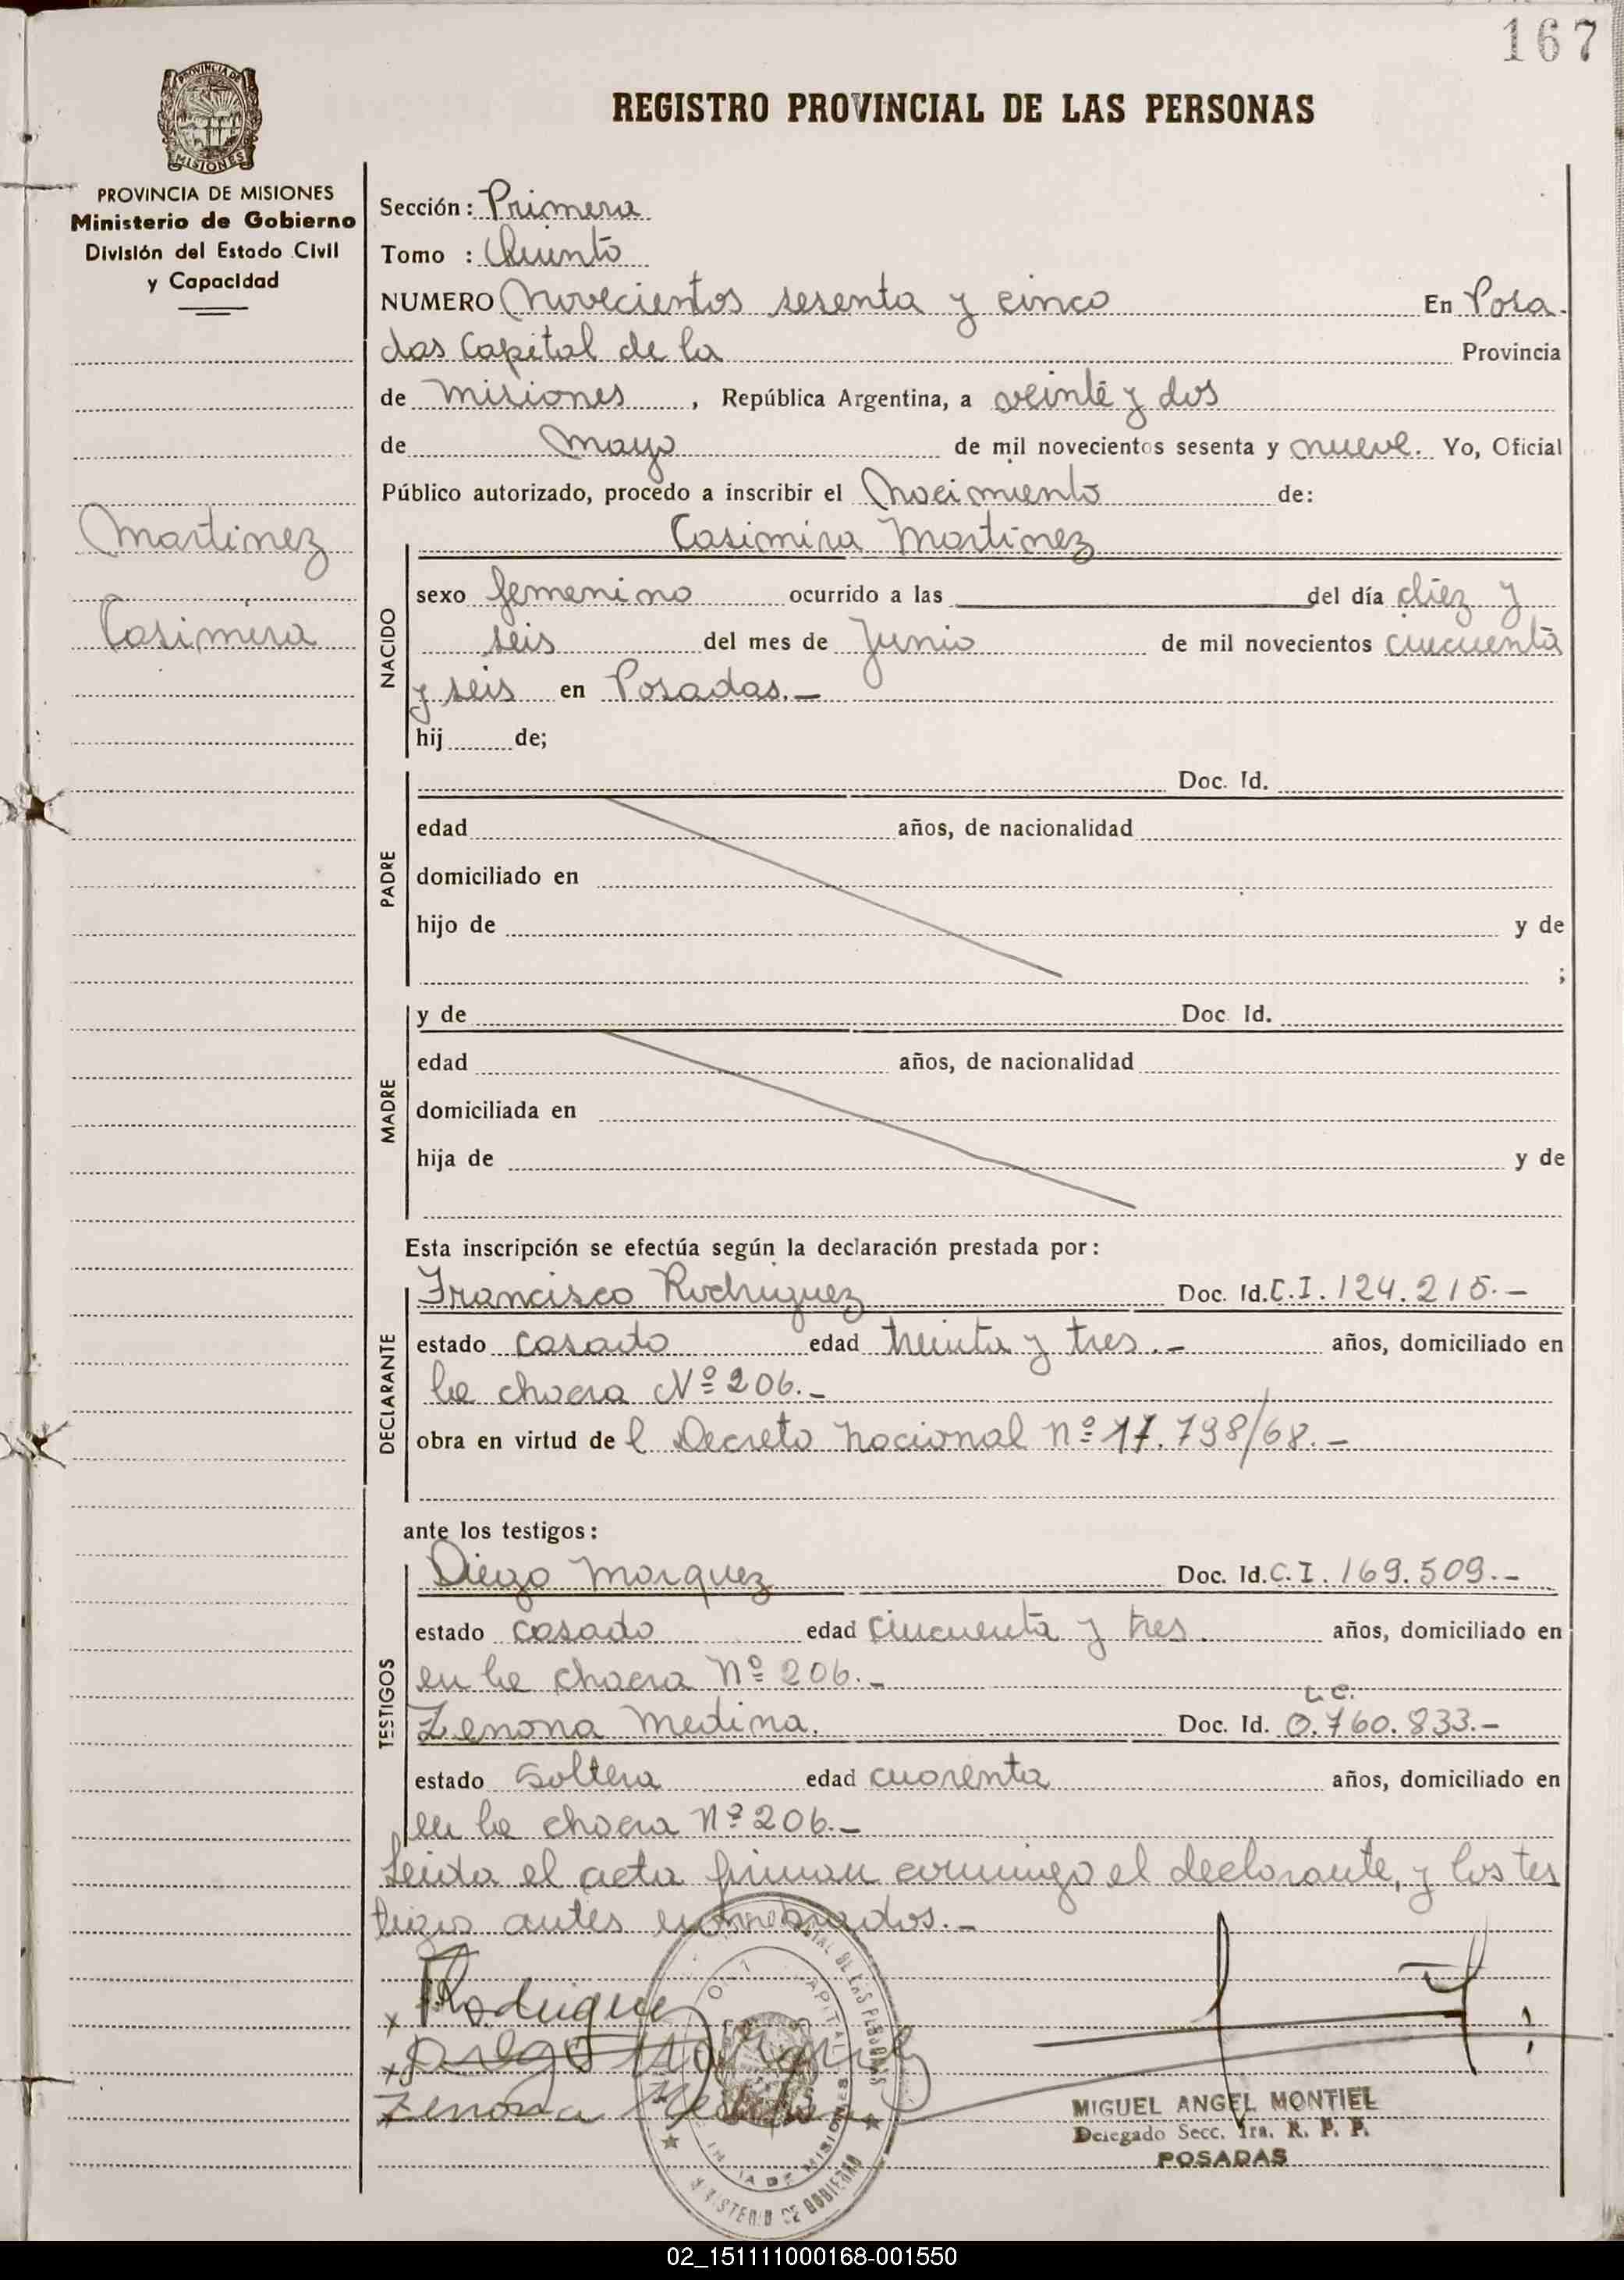 167
PROVINCIA DE
MISIONES
REGISTRO PROVINCIAL DE LAS PERSONAS
PROVINCIA DE MISIONES
Ministerio de Gobierno
División del Estado Civil
y Capacidad
Sección: Primera
Tomo : Quinto
NUMERO Novecientos sesenta y cinco En Posa-
das Capital de la Provincia
de Misiones, República Argentina, a veinte y dos
de Mayo de mil novecientos sesenta y nueve. Yo, Oficial
Público autorizado, procedo a inscribir el Nacimiento de:
Martinez
Casimira
NACIDO
Casimira Martinez
sexo femenino ocurrido a las del día diez y
seis del mes de Junio de mil novecientos cincuenta
y seis en Posadas.—
hij de;
PADRE
Doc. Id.
edad años, de nacionalidad
domiciliado en
hijo de y de
;
MADRE
y de Doc. Id.
edad años, de nacionalidad
domiciliada en
hija de y de
Esta inscripción se efectúa según la declaración prestada por:
DECLARANTE
Francisco Rodriguez Doc. Id. C.I. 124.215.—
estado casado edad treinta y tres.— años, domiciliado en
la chacra Nº 206.—
obra en virtud de l Decreto Nacional nº 17.798/68.—
ante los testigos:
TESTIGOS
Diego Marquez Doc. Id. C.I. 169.509.—
estado casado edad cincuenta y tres. años, domiciliado en
en la chacra Nº 206.—
L.C.
Zenona Medina. Doc. Id. 0.760.833.—
estado soltera edad cuarenta años, domiciliado en
en la chacra Nº 206.—
Leida el acta firman conmigo el declarante, y los tes
tigos antes nombrados.—
x Rodriguez
x Diego Marquez
Zenona Medina
DE LAS PERSONAS
CAPITAL
DE MISIONES
MINISTERIO DE GOBIERNO
MIGUEL ANGEL MONTIEL
Delegado Secc. 1ra. R. P. P.
POSADAS
02_151111000168-001550